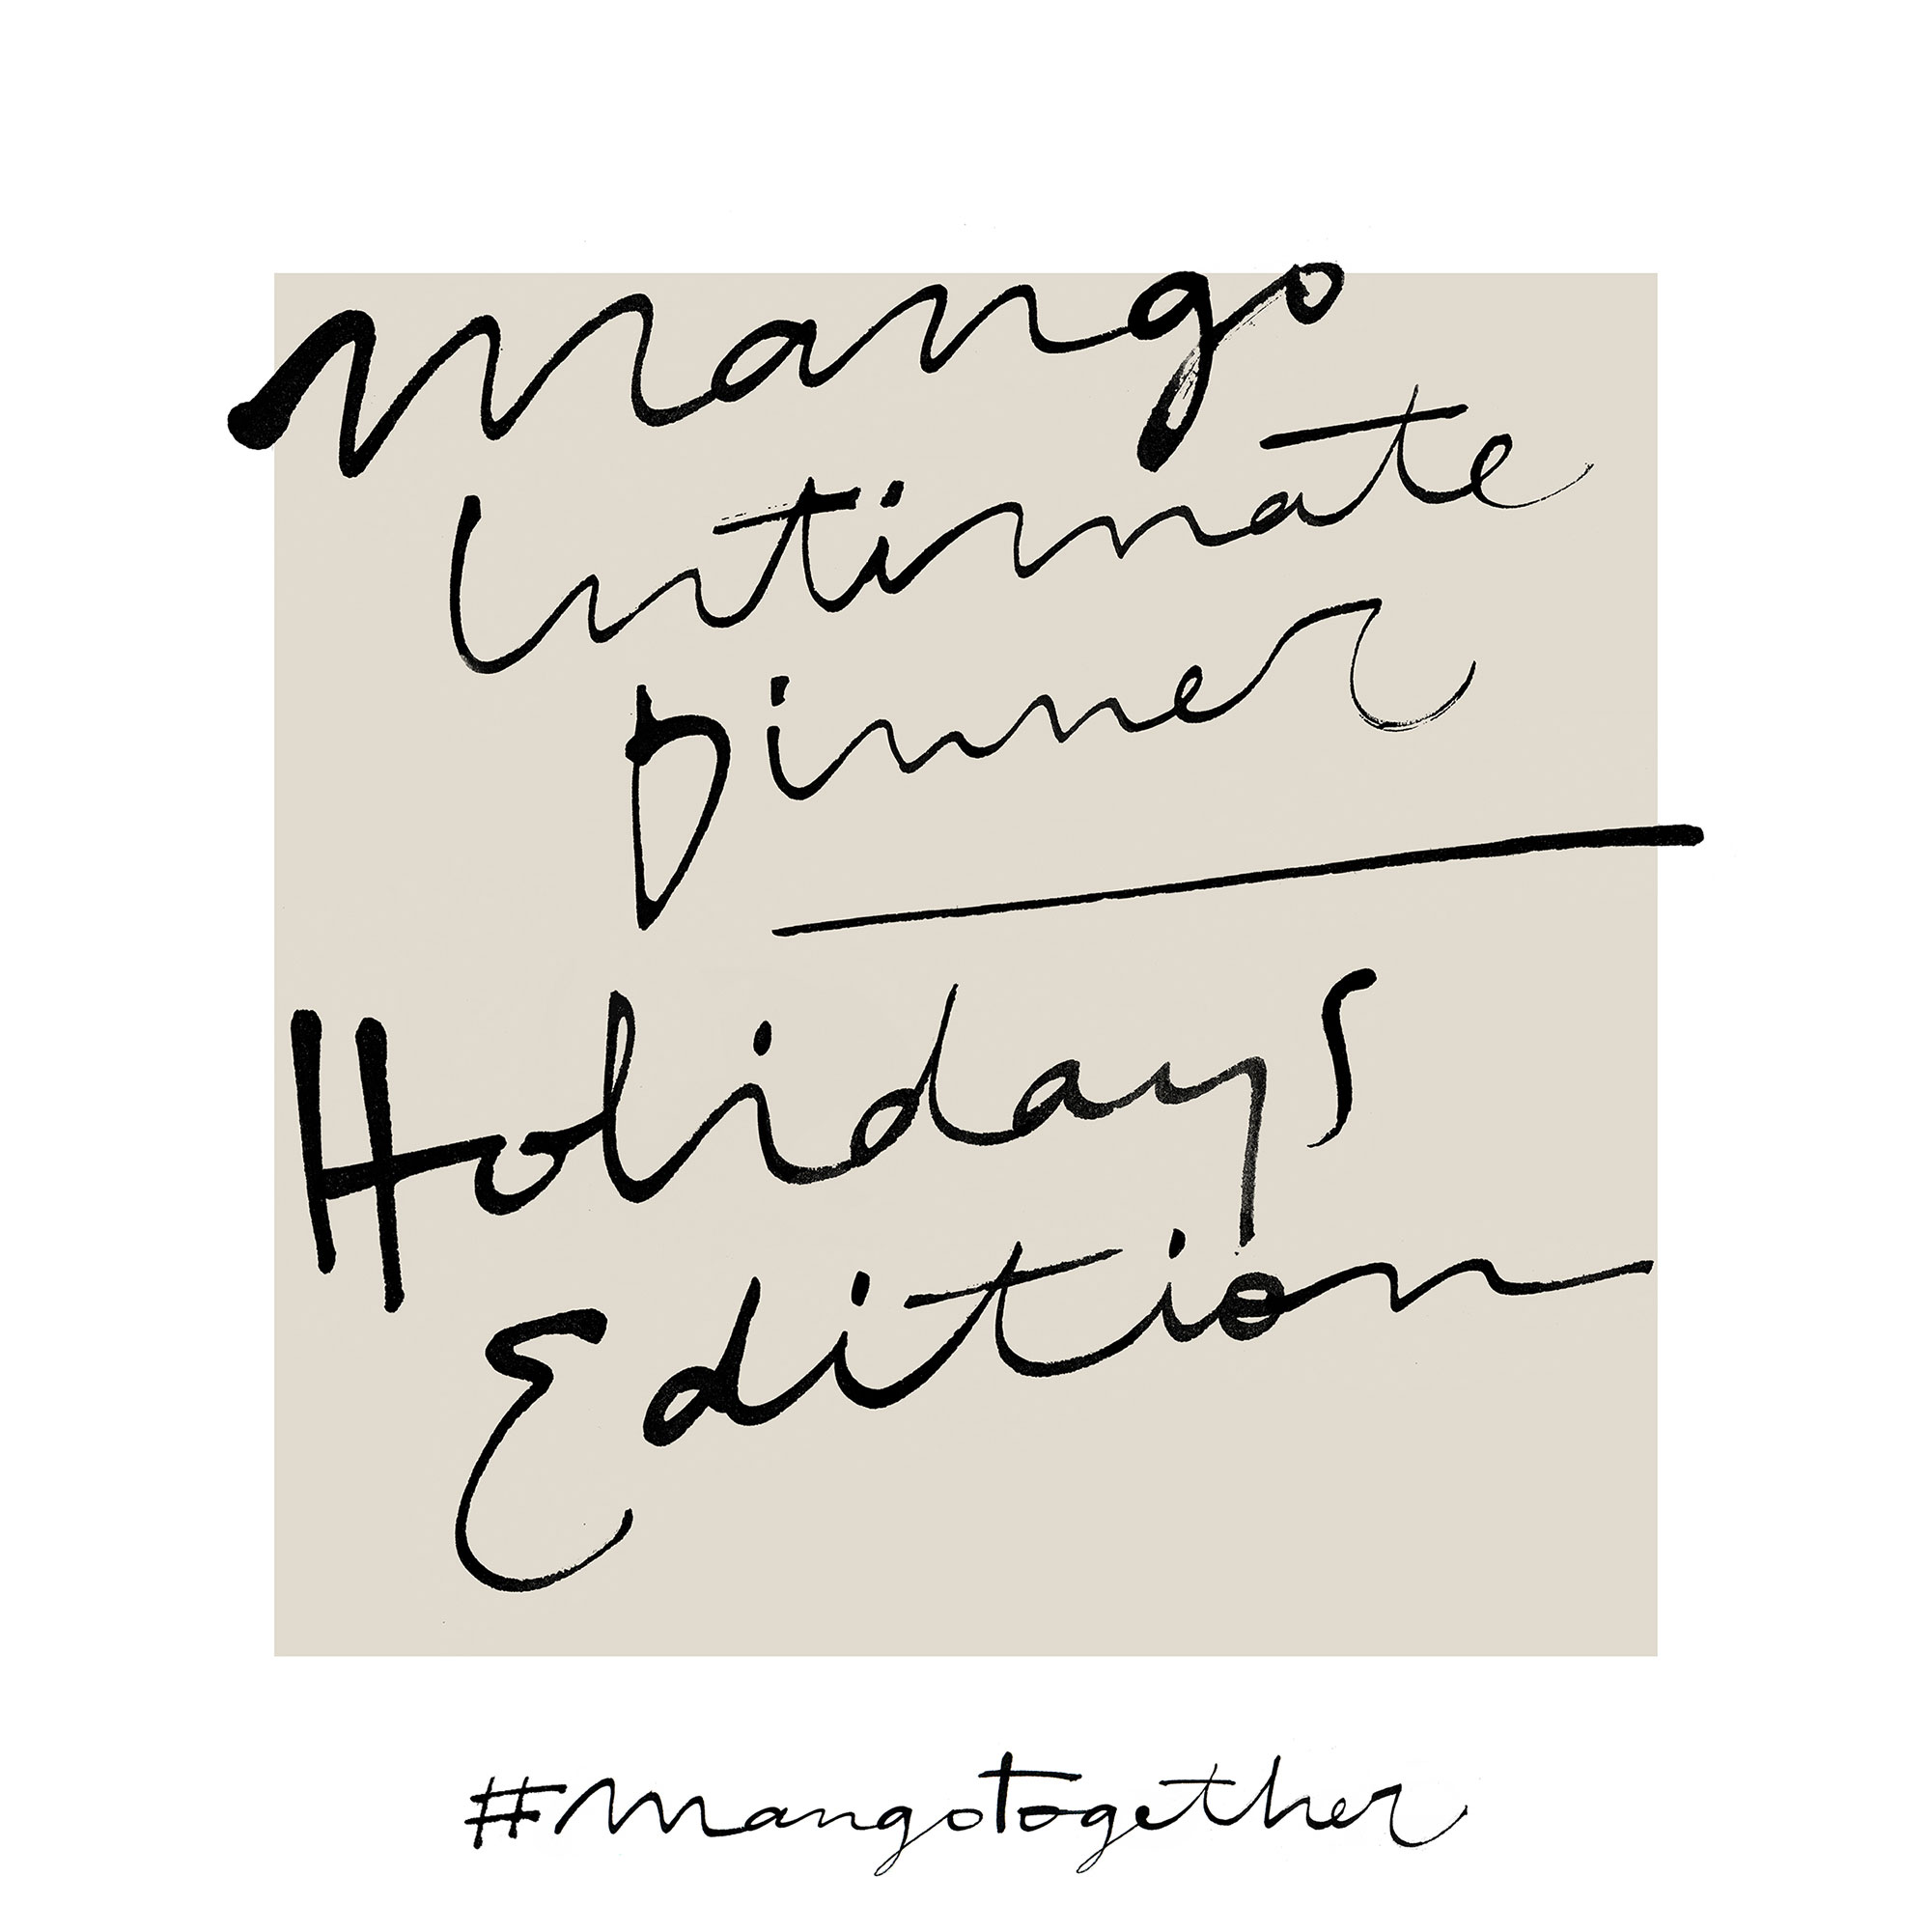 Mango
Intimate
Dinner
Holidays
Edition
#Mangotogether